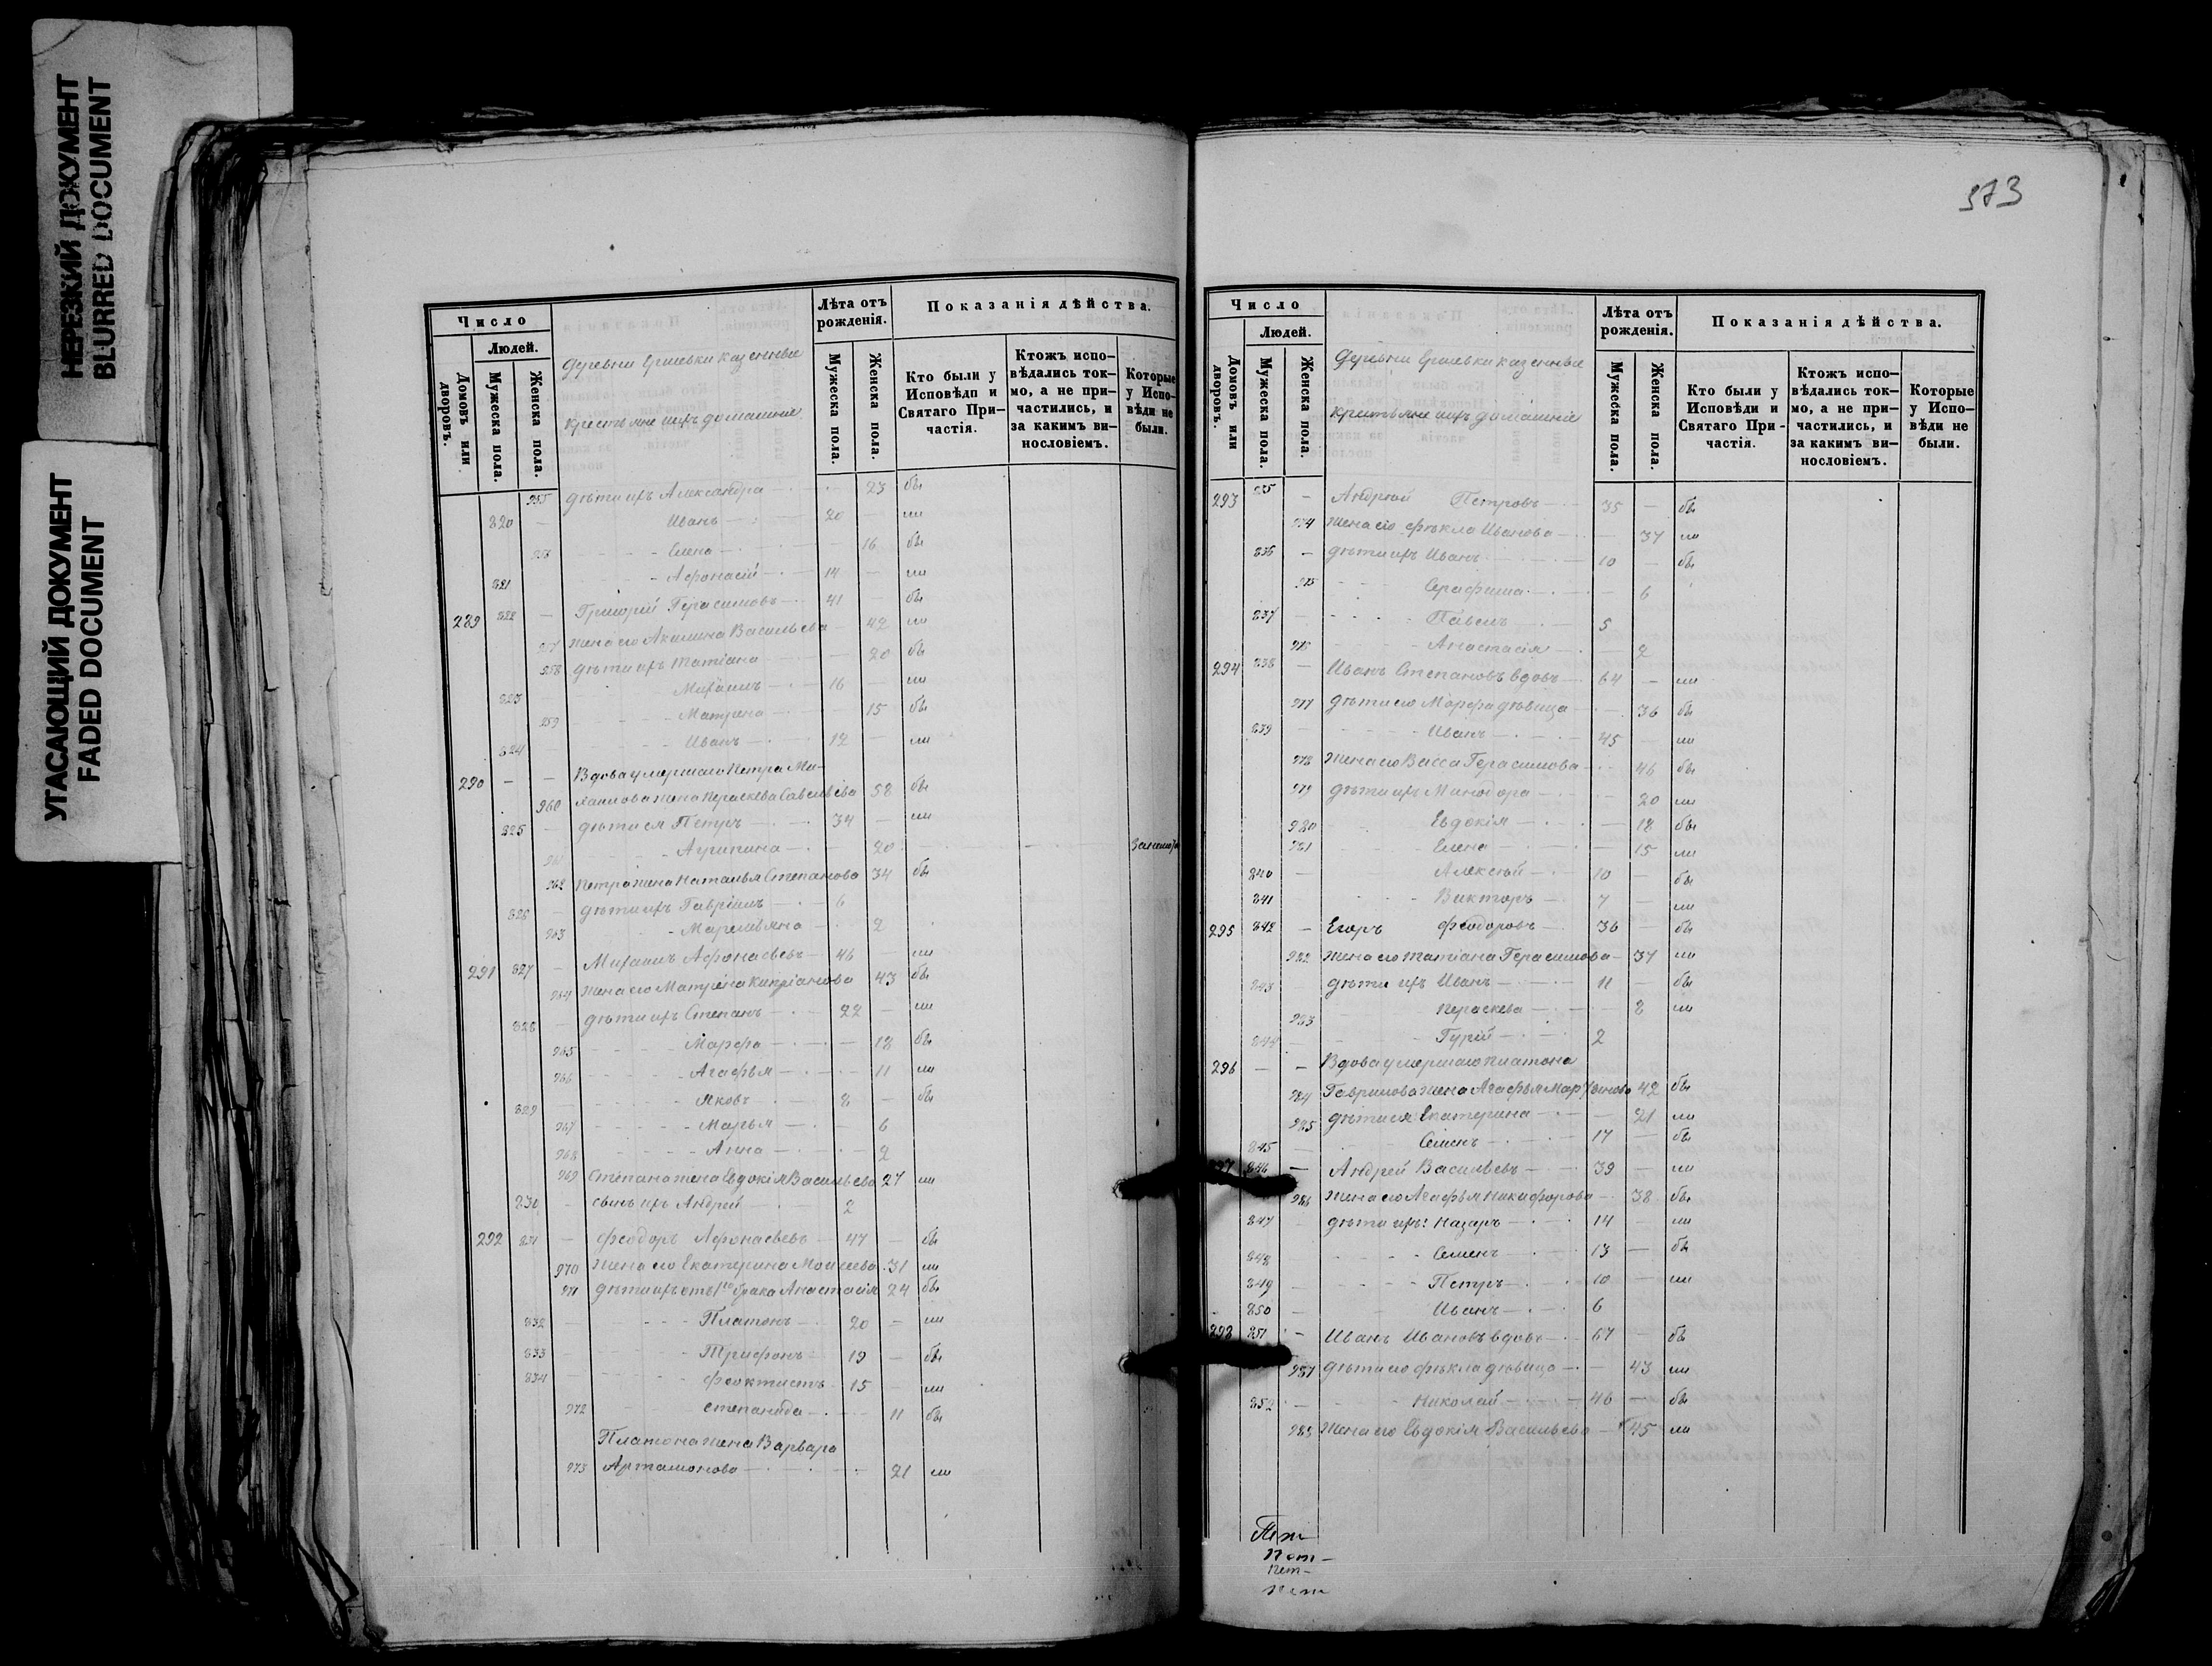 НЕРЕЗКИЙ ДОКУМЕНТ
BLURRED DOCUMENT
УГАСАЮЩИЙ ДОКУМЕНТ
FADED DOCUMENT
Число
Людей.
Домовъ или дворовъ.
Мужеска пола.
Женска пола.
казенные
крестьяне ихъ домашніе
Лѣта отъ рожденія.
Мужеска пола.
Женска пола.
Показанія дѣйства.
Кто были у Исповѣди и Святаго Причастія.
Ктожъ испо-вѣдались ток-мо, а не при-частились, и за какимъ ви-нословіемъ.
Которые у Испо-вѣди не были.
955 дѣти ихъ Александра 23 бы
820 — Иванъ 20 — ли
Елена — 16 бы
821 Афонасій 14 — ли
289 822 — Григорій Герасимовъ 41 — бы
957 жена его Акилина Васильева 42 ли
958 дѣти ихъ Татіана — 20 бы
823 Михаилъ 16 — ли
959 Матрена — 15 бы
824 Иванъ 12 — ли
290 — — Вдова умершаго Петра Ми-
960 хаилова жена Параскева Савельева 58 бы
825 — дѣти ея Петръ 34 — ли
961 Агрипина — 20
962 Петра жена Наталья Степанова 34 бы
826 — дѣти ихъ Гавріилъ 6
963 2
291 827 — Михаилъ Афонасьевъ 46 — ли
964 жена его Матрена Кипріанова 43 бы
828 — дѣти ихъ Степанъ 22 — ли
965 Марфа — 18 бы
966 Агафья — 11 ли
829 Яковъ 8 — бы
967 Марья — 6
968 Анна — 2
969 Степана жена Евдокія Васильева 27 ли
830 — сынъ ихъ Андрей 2
292 831 — Феодоръ Афонасьевъ 47 — бы
970 жена его Екатерина Моисеева 31 ли
971 дѣти ихъ отъ 1го брака Анастасія 24 бы
832 Платонъ 20 — ли
833 Трифонъ 19 — бы
834 Феоктистъ 15 — ли
972 Степанида 11 бы
Платона жена Варвара
973 Артамонова 21 ли
373
Число
Людей.
Домовъ или дворовъ.
Мужеска пола.
Женска пола.
казенные
крестьяне ихъ домашніе
Лѣта отъ рожденія.
Мужеска пола.
Женска пола.
Показанія дѣйства.
Кто были у Исповѣди и Святаго При-частія.
Ктожъ испо-вѣдались ток-мо, а не при-частились, и за какимъ ви-нословіемъ.
Которые у Испо-вѣди не были.
293 835 — Андрей Петровъ 35 — бы
974 жена его Фекла Иванова — 37 ли
836 — дѣти ихъ Иванъ 10 — бы
975 Серафима — 6
837 Павелъ 5
976 Анастасія — 2
294 838 — Иванъ Степановъ вдовъ 64 — ли
977 дѣти его Марфа дѣвица — 36 бы
839 Иванъ 45 — ли
978 жена его Васса Герасимова — 46 бы
979 дѣти ихъ Минодора — 20 ли
980 Евдокія — 18 бы
981 Елена — 15 ли
840 Алексѣй 10 — бы
841 Викторъ 7 — ли
295 842 — Егоръ Феодоровъ 36 — бы
982 жена его Татіана Герасимова — 37 ли
843 дѣти ихъ Иванъ 11 — бы
983 Параскева — 8 ли
844 Гурій 2
296 — — Вдова умершаго Платона
984 Гаврилова жена Агафья 42 бы
985 дѣти ея Екатерина — 21 ли
845 Семенъ 17 — бы
297 846 — Андрей Васильевъ 39 — ли
986 жена его Агафья Никифорова — 38 бы
847 дѣти ихъ: Назаръ 14 — ли
848 Семенъ 13 — бы
849 Петръ 10 — ли
850 Иванъ 6
298 851 — Иванъ Ивановъ вдовъ 67 — бы
987 дѣти его Фекла дѣвица — 43 ли
852 — Николай 46 — бы
988 жена его Евдокія Васильева — 45 ли